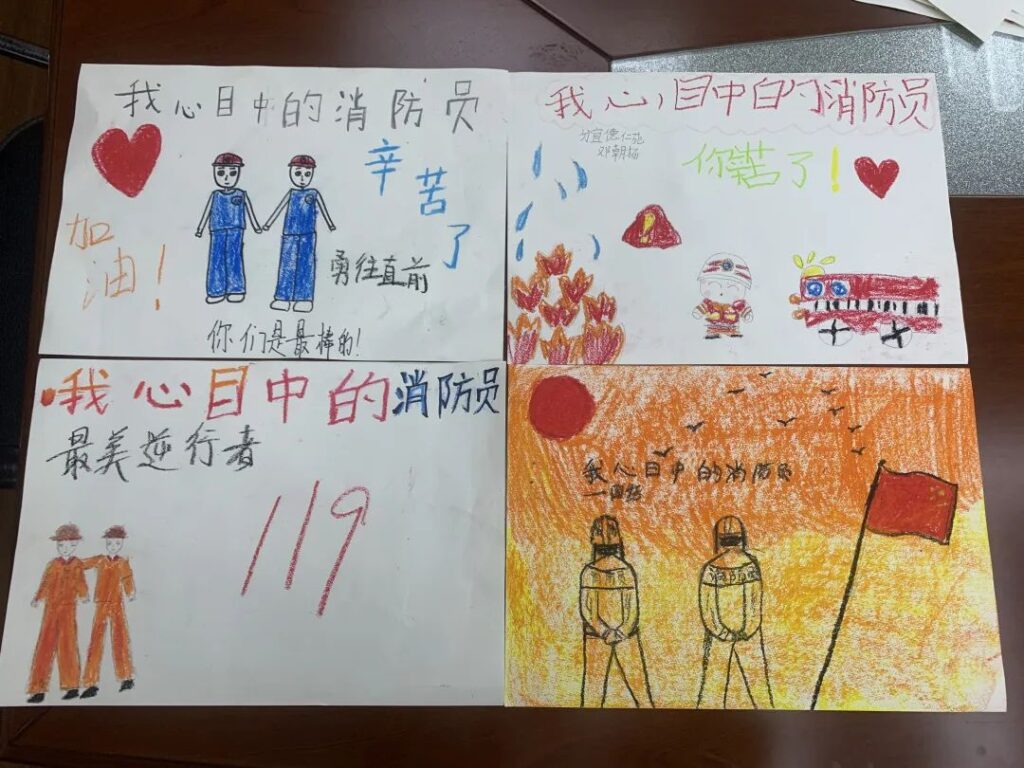 我心目中的消防员
辛苦了
加油！
勇往直前
你们是最棒的！
我心目中的消防员
分宜德仁苑
你辛苦了！
!
我心目中的消防员
最美逆行者
119
我心目中的消防员
消防员